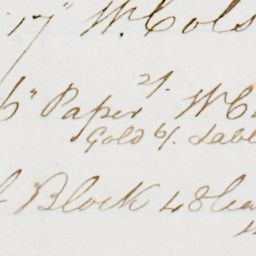 17" W. Cols
6" Paper 2/. W C
Gold 6/. Labl
Block 48